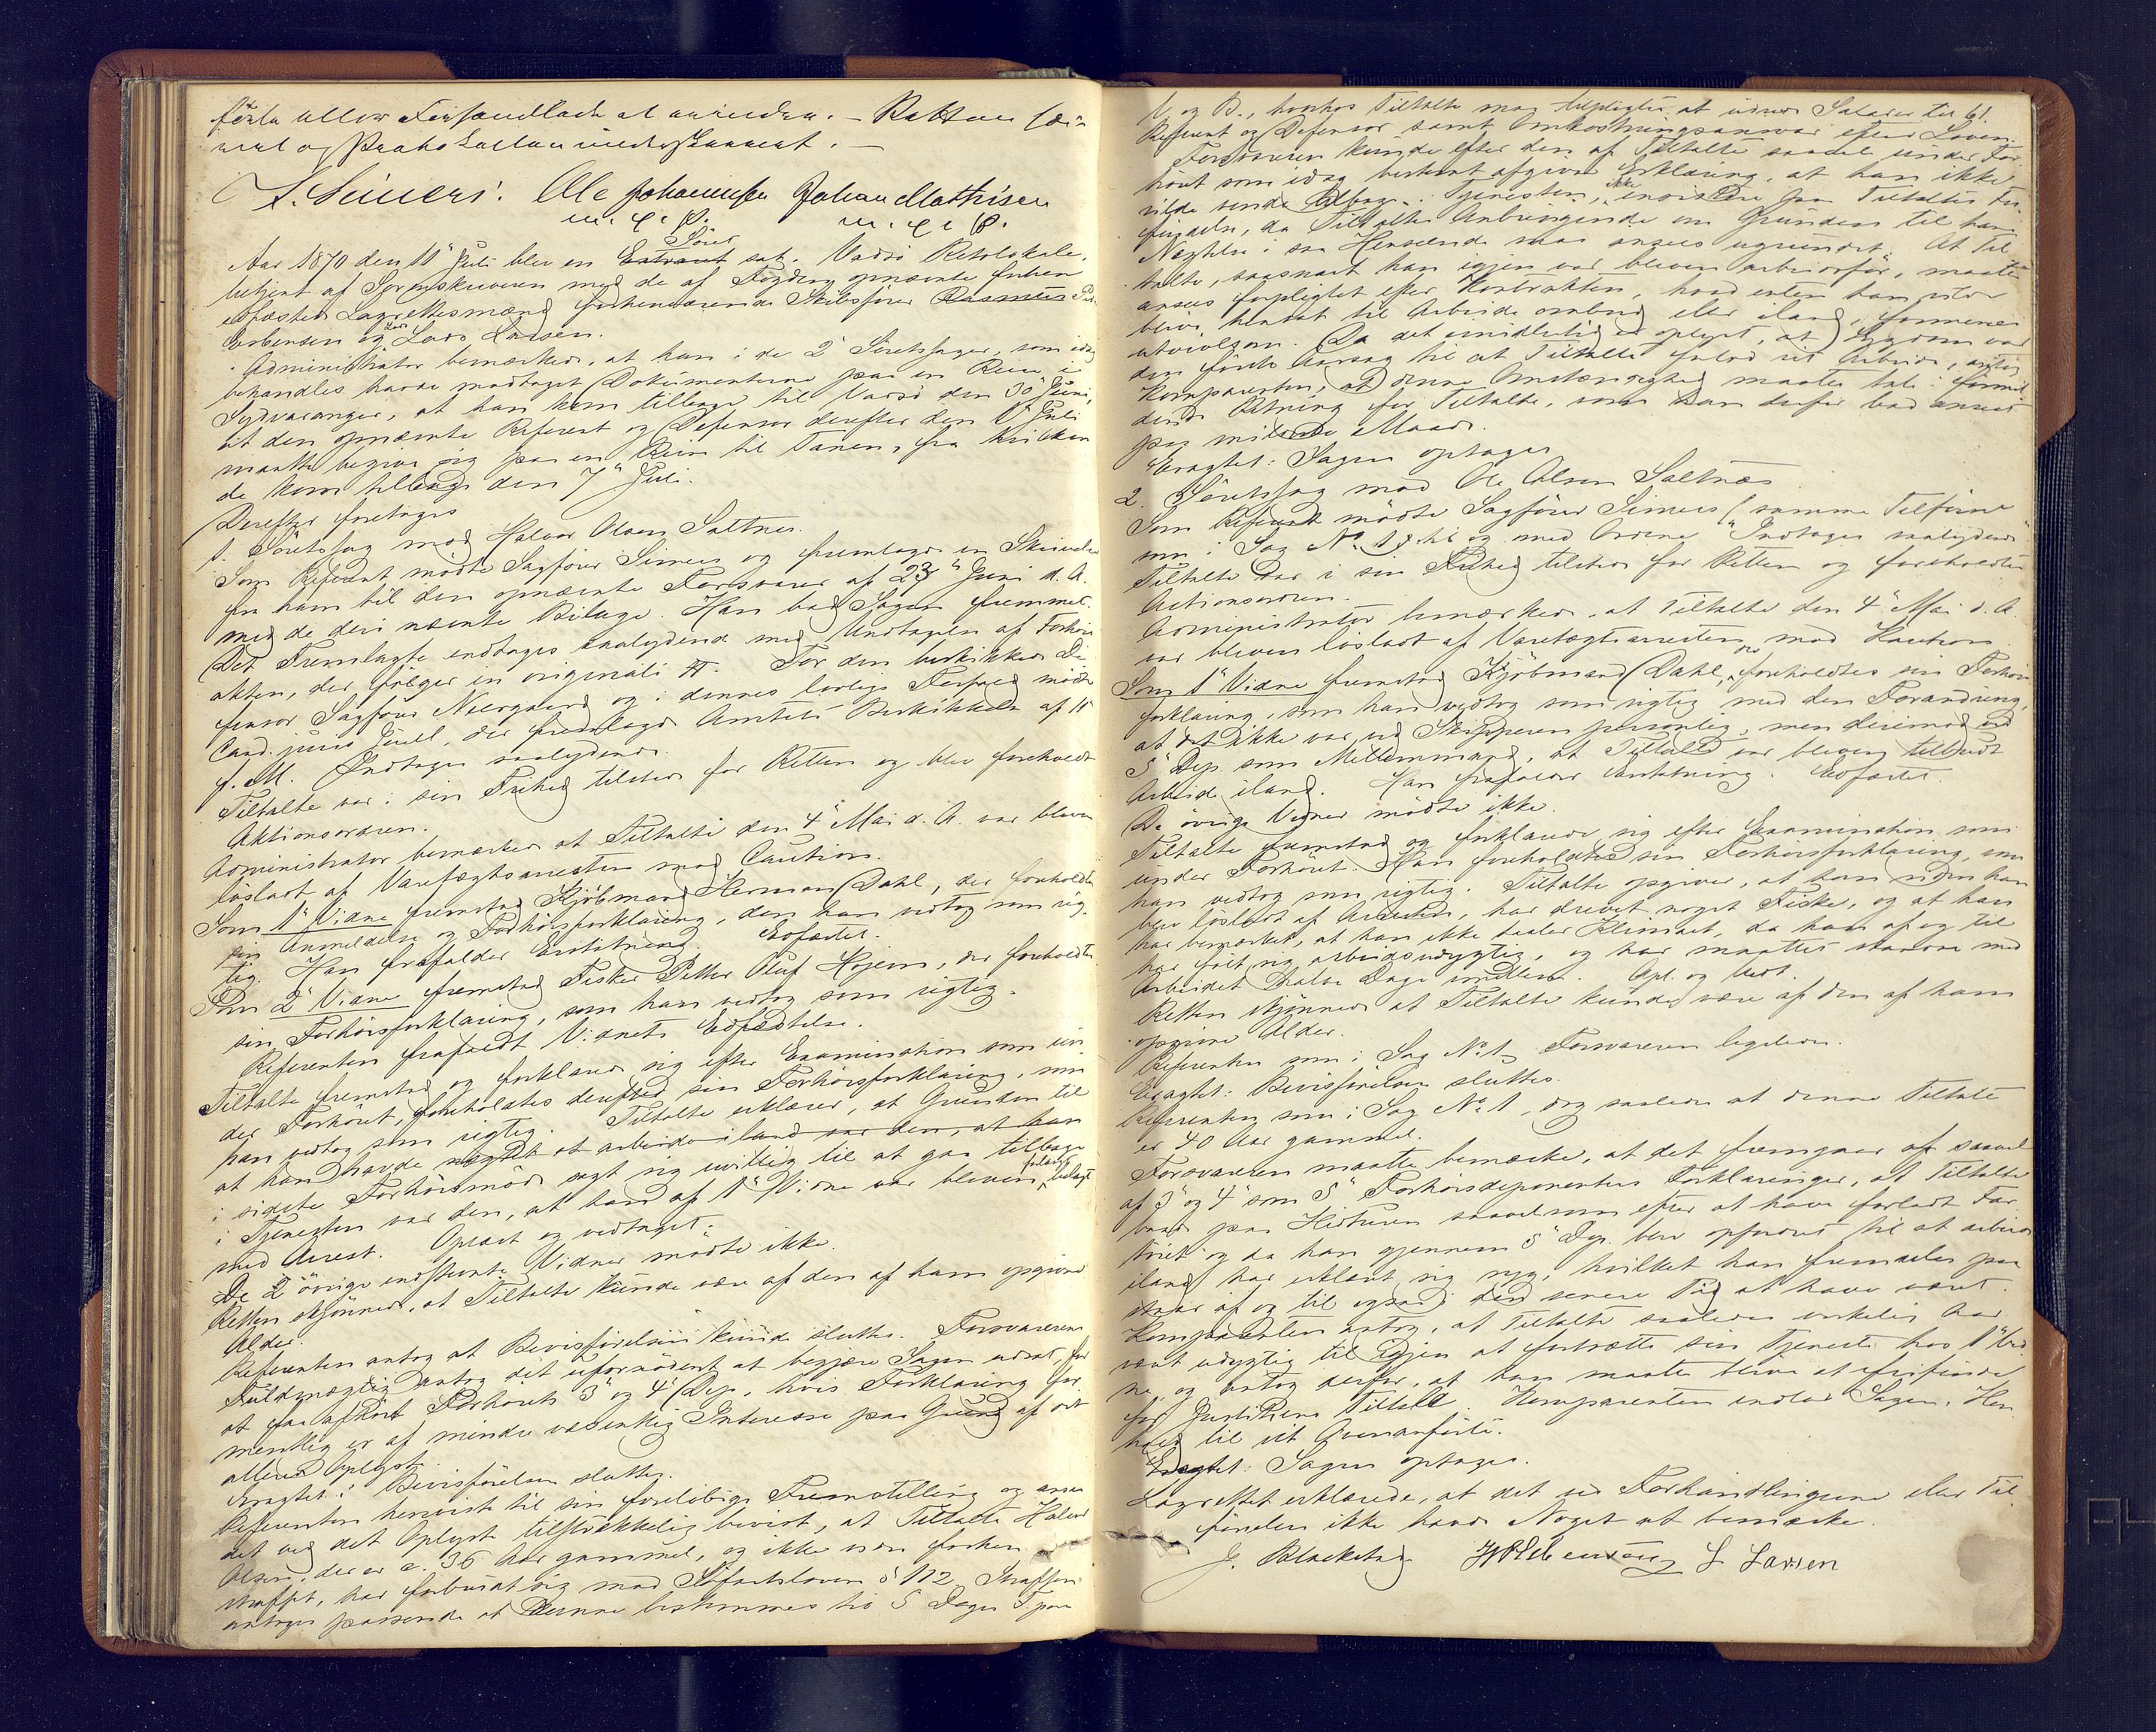 förte eller Forhandlede at anmerke. – Retten
og Protokollen underskrevet. –
S. Simers. Ole Johannesen Johan Mathisen
m. f. P. m. f. P.
Aar 1870 den 11' Juli blev en Extraret Söret sat i Vadsö Retslokale,
betjent af Sorenskriveren med de af Fogden opnævnte forhen
edfæstede Lagrettesmænd forhenværende Skibsförer Rasmus
Esbensen og Lars Larsen.
Administrator bemærkede, at han i de 2 Söretssager, som idag
behandles havde modtaget Dokumenterne paa en Reise i
Sydvaranger, at han kom tilbage til Vadsö den 30' Juni,
at den opnævnte Referent og Defensor derefter den 1' Juli
maatte begive sig paa en Reise til Tanen, fra hvilken
de kom tilbage den 7' Juli.
Derefter foretoges
1. Söretssag mod Halvor Olsen Saltnes.
Som Referent mödte Sagförer Simers og fremlagde en Skrivelse
fra ham til den opnævnte Forsvarer af 23' Juni d. A.
med de deri nævnte Bilage. Han bad Sagen fremmet.
Det Fremlagte indtages saalydende med Undtagelse af Forhörs
akten, der fölger in originali. For den beskikkede De
fensor Sagförer Neergaard og i dennes lovlige Forfald mödte
Cand. juris Juell, der fremlagde Amtets Beskikkelse af 11'
f. M. Indtages saalydende.
Tiltalte var i sin Frihed tilstede for Retten og blev foreholdt
Aktionsordren.
Administrator bemærkede at Tiltalte den 4' Mai d. A. var bleven
lösladt af Varetægtsarresten mod Caution.
Som 1' Vidne fremstod Kjöbmand Herman Dahl, der foreholdtes
sin Anmeldelse og Forhörsforklaring, den han vedtog som rig
tig. Han frafalder Erstatning. Edfæstet.
Som 2' Vidne fremstod Fisker Petter Oluf Hojem, der foreholdtes
sin Forhörsforklaring, som han vedtog som rigtig.
Referenten frafaldt Vidnets Edfæstelse.
Tiltalte fremstod og forklarede sig efter Examination som un
der Forhöret, foreholdtes derefter sin Forhörsforklaring, som
han vedtog som rigtig. Tiltalte erklærer, at Grunden til
at han havde nægtet at arbeide iland var den, at han
i sidste Forhörsmöde sagt sig uvillig til at gaa tilbage
i Tjenesten var den, at han af 1' Vidne var bleven belagt
med Arrest. Oplæst og vedtaget.
De 2 övrige indstevnte Vidner mödte ikke.
Retten skjönnede, at Tiltalte kunde være af den af ham opgivne
Alder.
Referenten antog at Bevisförelsen kunde sluttes. Forsvarerens
Fuldmægtig antog det ufornödent at begjære Sagen udsat, for
at faa afhört Forhörets 3' og 4' Dep., hvis Forklaring for
mentlig er af mindre væsentlig Interesse paa Grund af det
allerede Oplyste.
Eragtet: Bevisförelsen sluttes.
Referenten henviste til sin foreløbige Fremstilling og ansaa
det ved det Oplyste tilstrækkelig bevist, at Tiltalte Halvor
Olsen, der er c. 36 Aar gammel, og ikke före forhen
straffet, har forbrudt sig mod Söfartsloven § 112. Straffen
antoges passende at kunne bestemmes til 5 Dages F. paa
V. og B., hvorhos Tiltalte maa tilpligtes at udrede Salarer til
Referent og Defensor samt Omkostningsansvar efter Loven.
Forsvareren kunde efter den af Tiltalte saavel under For
höret som idag bestemt afgivne Erklæring, at han ikke
vilde vende tilbage i Tjenesten, ikke indvilde paa Tiltaltes Fri
findelse, da Tiltaltes Anbringende om Grunden til hans
Nægtelse i saa Henseende maa ansees ugrundet. At Til
talte, saasnart han igjen var bleven arbeidsför, maatte
ansees forpligtet efter Kontrakten, hvad enten han vilde
blive benyttet til Arbeide ombord eller iland, formenes
utvivlsom. Da det imidlertid er oplyst, at Sygdom var
den förste Aarsag til at Tiltalte forlod sit Arbeide, antog
Komparenten, at denne Omstændighed maatte tale i formil
dende Retning for Tiltalte, som han derfor bad anseet
paa mildeste Maade.
Eragtet: Sagen optages.
2. Söretssag mod Ole Olsen Saltnæs
Som Referent mödte Sagförer Simers (samme Tilförsel
som i Sag No 1) til og med Ordene "Indtages saalydende".
Tiltalte var i sin Frihed tilstede for Retten og foreholdtes
Aktionsordren.
Administrator bemærkede, at Tiltalte den 4' Mai d. A.
var bleven lösladt af Varetægtsarresten mod Kaution.
Som 1' Vidne fremstod Kjöbmand Dahl, der foreholdtes sin Forhörs
forklaring, som han vedtog som rigtig med den Forandring,
at det ikke var ved Skipperen personlig, men derimod ved
5' Dep. som Mellemmand, at Tiltalte var bleven tilbudt
Arbeide iland. Han frafalder Erstatning. Edfæstet.
De övrige Vidner mödte ikke.
Tiltalte fremstod og forklarede sig efter Examination som
under Forhöret. Han foreholdtes sin Forhörsforklaring, som
han vedtog som rigtig. Tiltalte opgiver, at han siden han
blev lösladt af Arresten, har drevet noget Fiske, og at han
har bemærket, at han ikke taaler Klimaet, da han af og til
har fölt sig arbeidsudygtig, og har maattet standse med
Arbeidet halve Dage imellem. Opl. og Vedt.
Retten skjönnede at Tiltalte kunde være af den af ham
opgivne Alder.
Referenten som i Sag No 1, Forsvareren ligeledes.
Eragtet: Bevisförelsen sluttes.
Referenten som i Sag No 1, dog saaledes at denne Tiltalte
er 40 Aar gammel.
Forsvareren maatte bemærke, at det fremgaar af saavel
af 3' og 4' som 5' Forhörsdeponentes Forklaringer, at Tiltalte
baade paa Hidturen saavelsom efter at have forladt Far
töiet og da han gjennem 5' Dep. blev opfordret til at arbeide
iland har erklært sig syg, hvilket han fremdeles paa
staar af og til ogsaa i den senere Tid at have været.
Komparenten antog, at Tiltalte saaledes virkelig har
været udygtig til igjen at fortsætte sin Tjeneste hos 1' Vid
ne, og antog derfor, at han maatte blive at frifinde
for Justitiens Tiltale. Komparenten indlod Sagen i Hen
hold til sit Ovenanförte.
Eragtet: Sagen optages.
Lagrettet erklærede, at det ved Forhandlingerne eller Til
förselen ikke havde Noget at bemærke.
J. Blackstad L Larsen